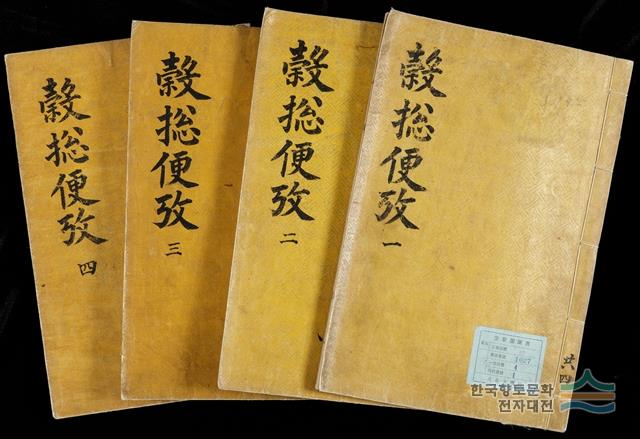 穀摠便攷 四
穀摠便攷 三
穀摠便攷 二
穀摠便攷 一
共四
1627
한국향토문화
전자대전